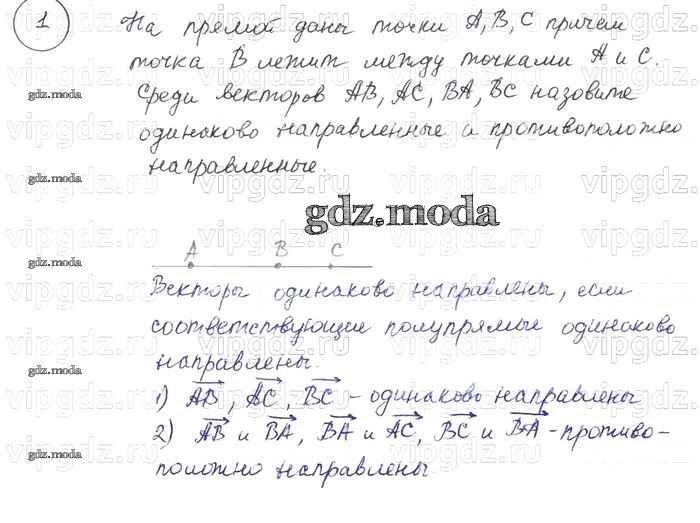 1 На прямой даны точки A, B, C причем
точка B лежит между точками A и C.
Среди векторов AB, AC, BA, BC назовите
одинаково направленные и противоположно
направленные.
gdz.moda
A B C
Векторы одинаково направлены, если
соответствующие полупрямые одинаково
направлены.
1) AB, AC, BC - одинаково направлены
2) AB и BA, BA и AC, BC и BA - противо-
положно направлены